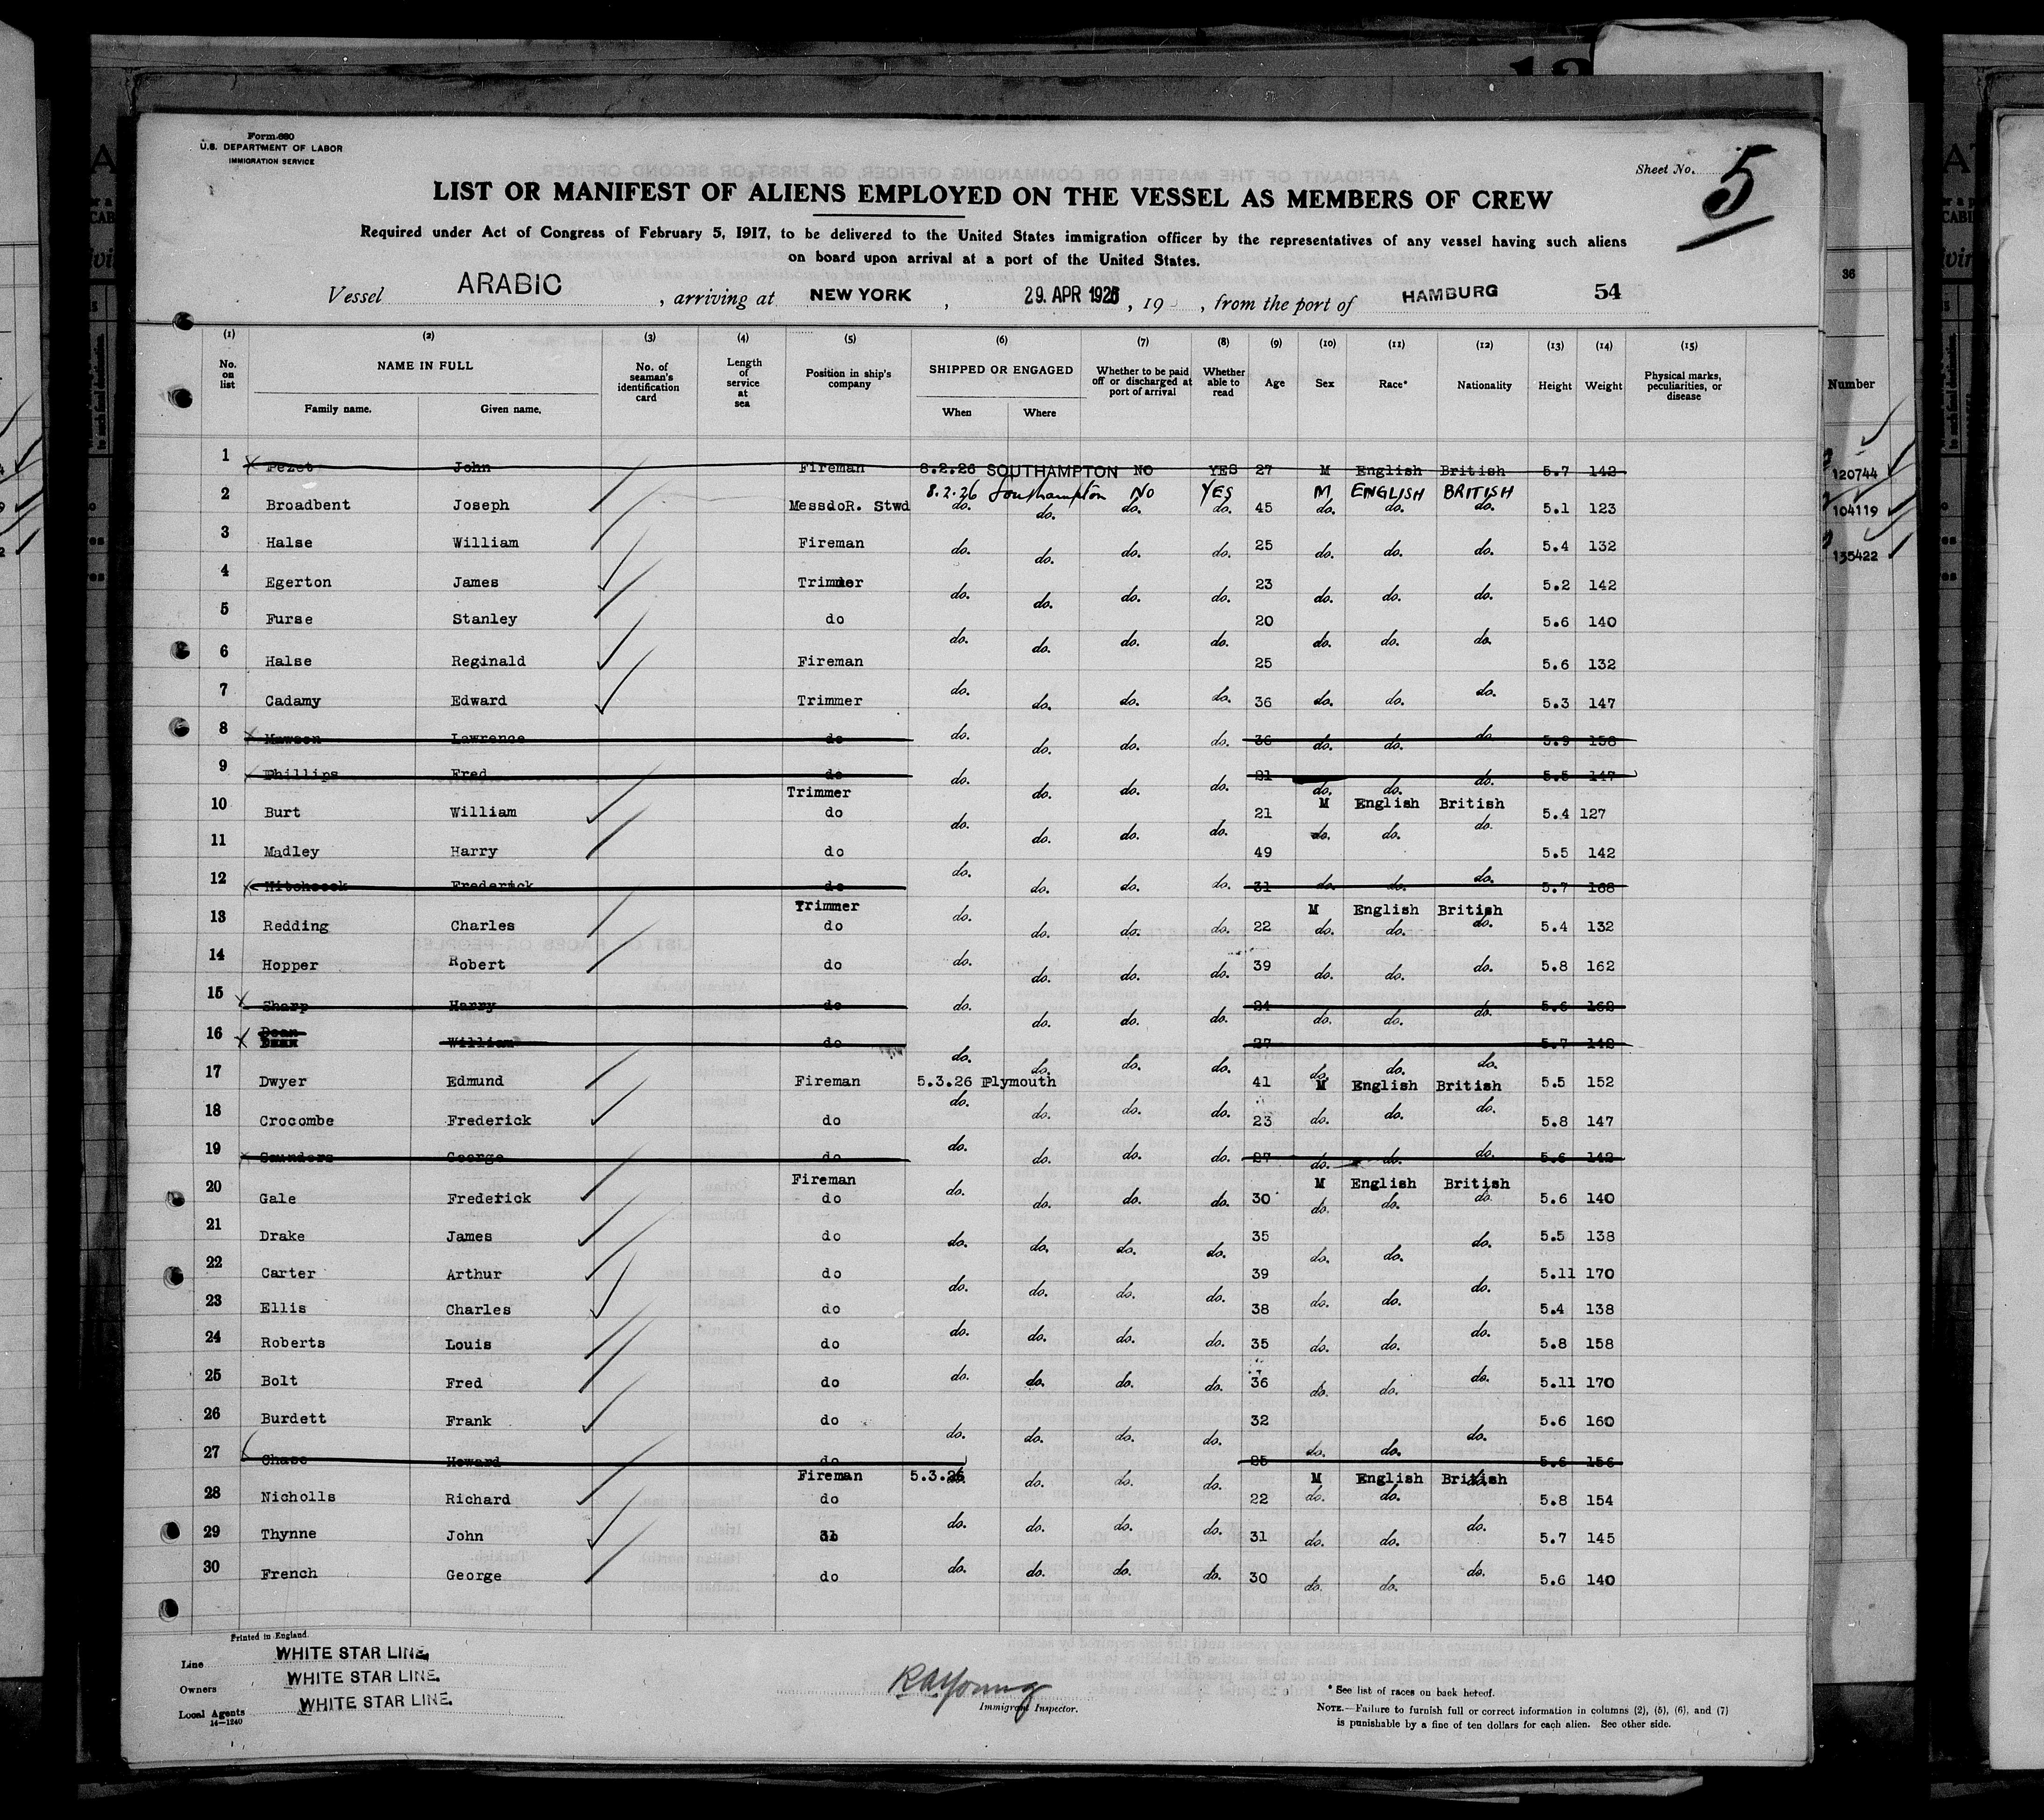 Form 680
U.S. DEPARTMENT OF LABOR
IMMIGRATION SERVICE
Sheet No. 5
LIST OR MANIFEST OF ALIENS EMPLOYED ON THE VESSEL AS MEMBERS OF CREW
Required under Act of Congress of February 5, 1917, to be delivered to the United States immigration officer by the representatives of any vessel having such aliens
on board upon arrival at a port of the United States.
Vessel ARABIC, arriving at NEW YORK, 29. APR 1926, 19 , from the port of HAMBURG 54
(1) (2) (3) (4) (5) (6) (7) (8) (9) (10) (11) (12) (13) (14) (15)
No. on list NAME IN FULL Family name. Given name. No. of seaman's identification card Length of service at sea Position in ship's company SHIPPED OR ENGAGED When Where Whether to be paid off or discharged at port of arrival Whether able to read Age Sex Race* Nationality Height Weight Physical marks, peculiarities, or disease
1 Pezet John Fireman 8.2.26 SOUTHAMPTON NO YES 27 M English British 5.7 142
8.2.26 Southampton No YES M ENGLISH BRITISH
2 Broadbent Joseph MessdoR. Stwd do. do. do. do. 45 do. do. do. 5.1 123
3 Halse William Fireman do. do. do. do. 25 do. do. do. 5.4 132
4 Egerton James Trimmer do. do. do. do. 23 do. do. do. 5.2 142
5 Furse Stanley do do. do. do. do. 20 do. do. do. 5.6 140
6 Halse Reginald Fireman 25 5.6 132
7 Cadamy Edward Trimmer do. do. do. do. 36 do. do. do. 5.3 147
8 Mawson Lawrence do do. do. do. do. 36 do. do. do. 5.9 158
9 Phillips Fred do do. do. do. do. 21 do. do. do. 5.5 147
Trimmer M English British
10 Burt William do do. do. do. do. 21 do. do. do. 5.4 127
11 Madley Harry do 49 5.5 142
12 Hitchcock Frederick do do. do. do. do. 31 do. do. do. 5.7 168
Trimmer M English British
13 Redding Charles do do. do. do. do. 22 do. do. do. 5.4 132
14 Hopper Robert do do. do. do. do. 39 do. do. do. 5.8 162
15 Sharp Harry do do. do. do. do. 24 do. do. do. 5.6 162
16 Dean William do do. do. do. do. 27 do. do. do. 5.7 142
17 Dwyer Edmund Fireman 5.3.26 Plymouth 41 M English British 5.5 152
18 Crocombe Frederick do do. do. do. do. 23 do. do. do. 5.8 147
19 Saunders George do do. do. do. do. 27 do. do. do. 5.6 142
Fireman M English British
20 Gale Frederick do do. do. do. do. 30 do. do. do. 5.6 140
21 Drake James do do. do. do. do. 35 do. do. do. 5.5 138
22 Carter Arthur do do. do. do. do. 39 do. do. do. 5.11 170
23 Ellis Charles do 38 5.4 138
24 Roberts Louis do do. do. do. do. 35 do. do. do. 5.8 158
25 Bolt Fred do do. do. do. do. 36 do. do. do. 5.11 170
26 Burdett Frank do do. do. do. do. 32 do. 5.6 160
27 Chase Howard do 25 do. do. 5.6 156
Fireman 5.3.26 do. do. do. do. M English British
28 Nicholls Richard do 22 do. do. 5.8 154
29 Thynne John do. do. do. do. 31 do. do. do. 5.7 145
30 French George do do. do. do. do. 30 do. do. do. 5.6 140
Printed in England.
Line WHITE STAR LINE.
Owners WHITE STAR LINE.
Local Agents WHITE STAR LINE.
14—1240
R A Young
Immigrant Inspector.
*See list of races on back hereof.
NOTE.—Failure to furnish full or correct information in columns (2), (5), (6), and (7)
is punishable by a fine of ten dollars for each alien. See other side.
36
Number
120744
104119
135422